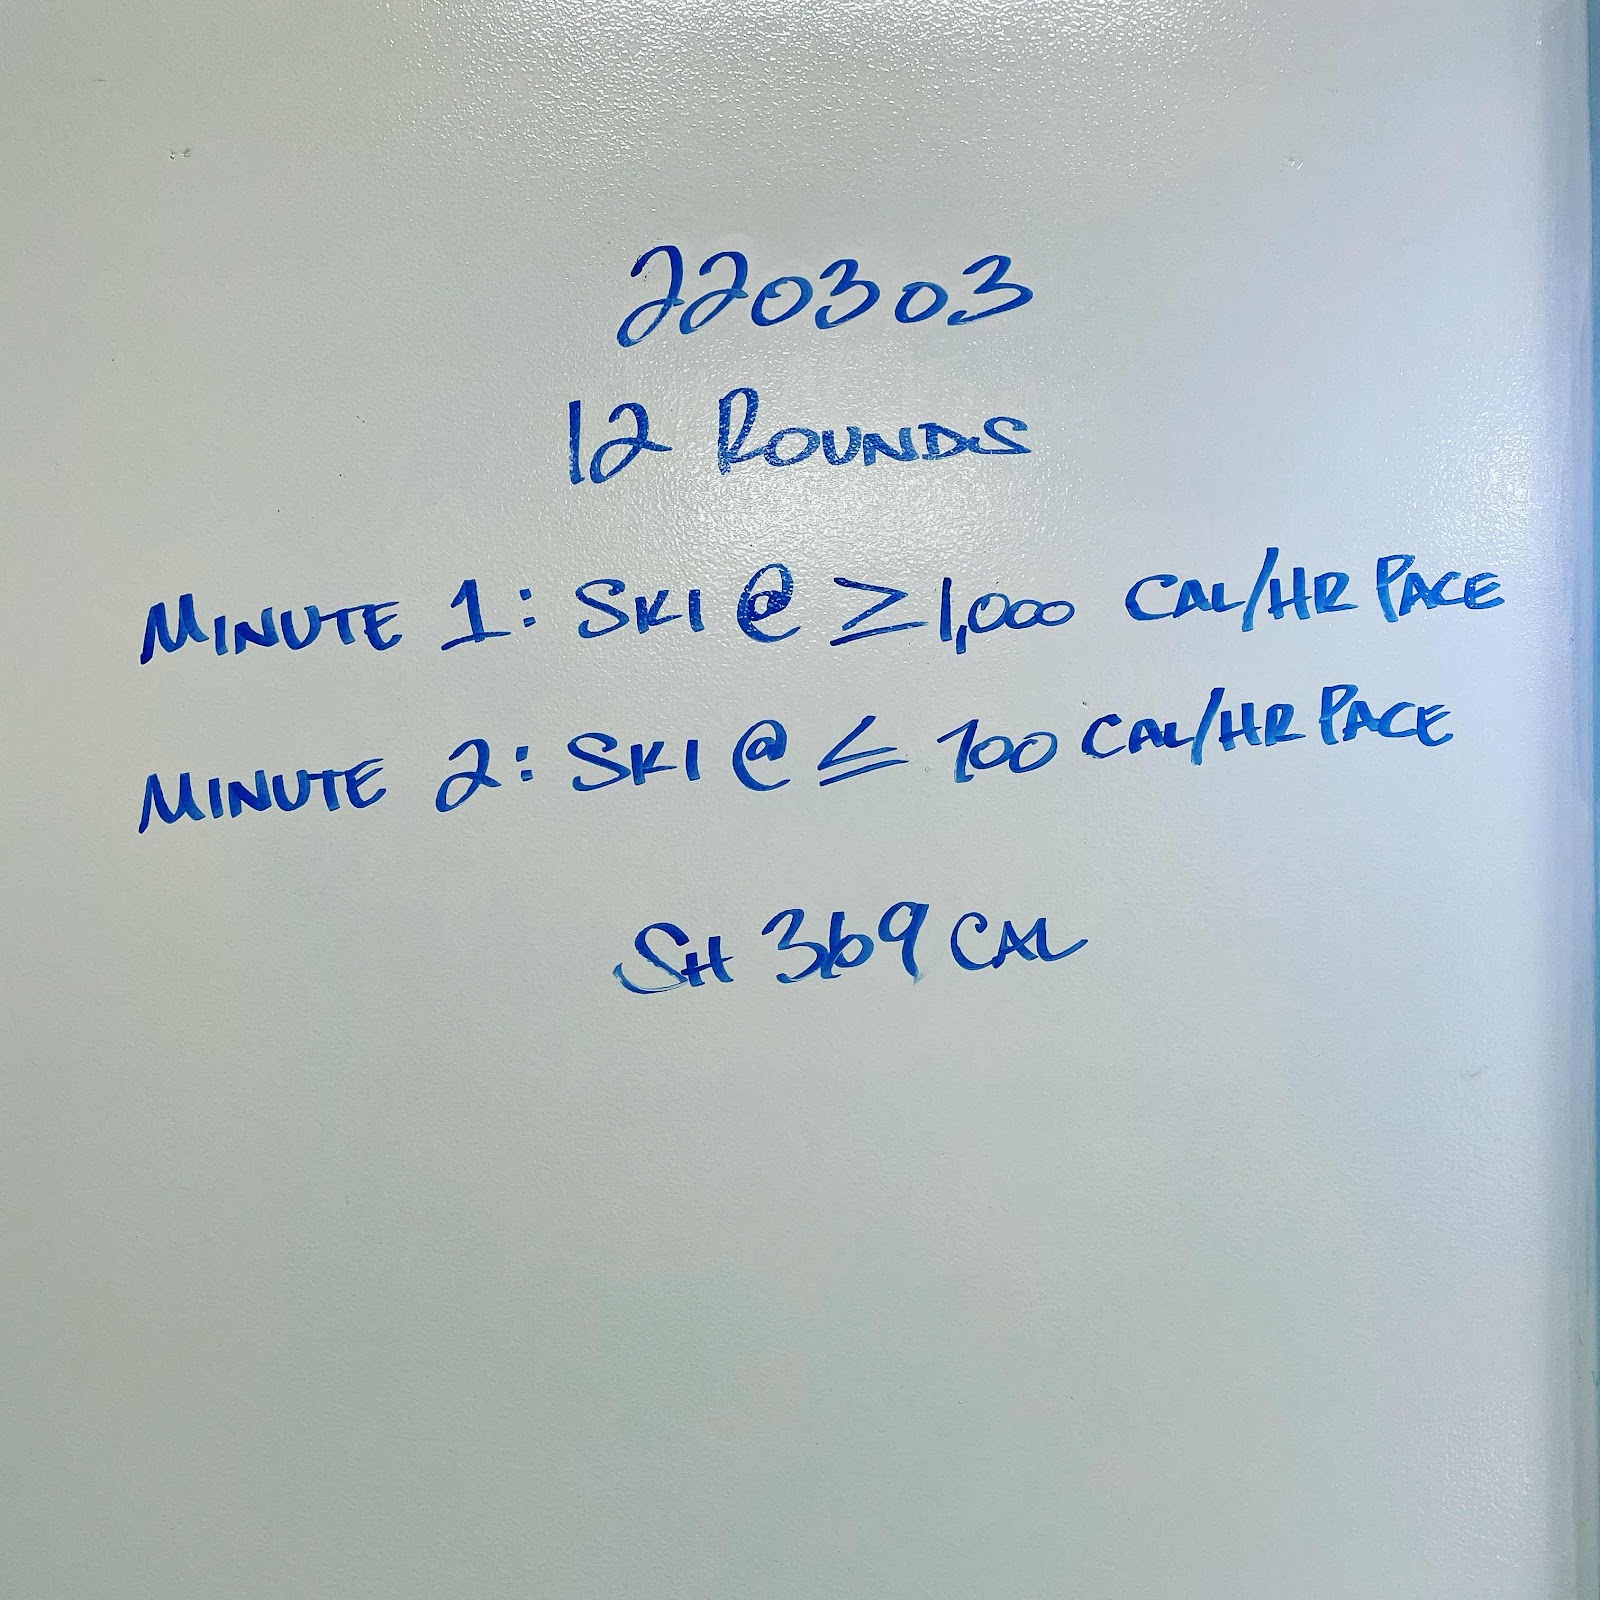 220303
12 ROUNDS
MINUTE 1: SKI @ ≥1,000 CAL/HR PACE
MINUTE 2: SKI @ ≤ 700 CAL/HR PACE
SH 369 CAL